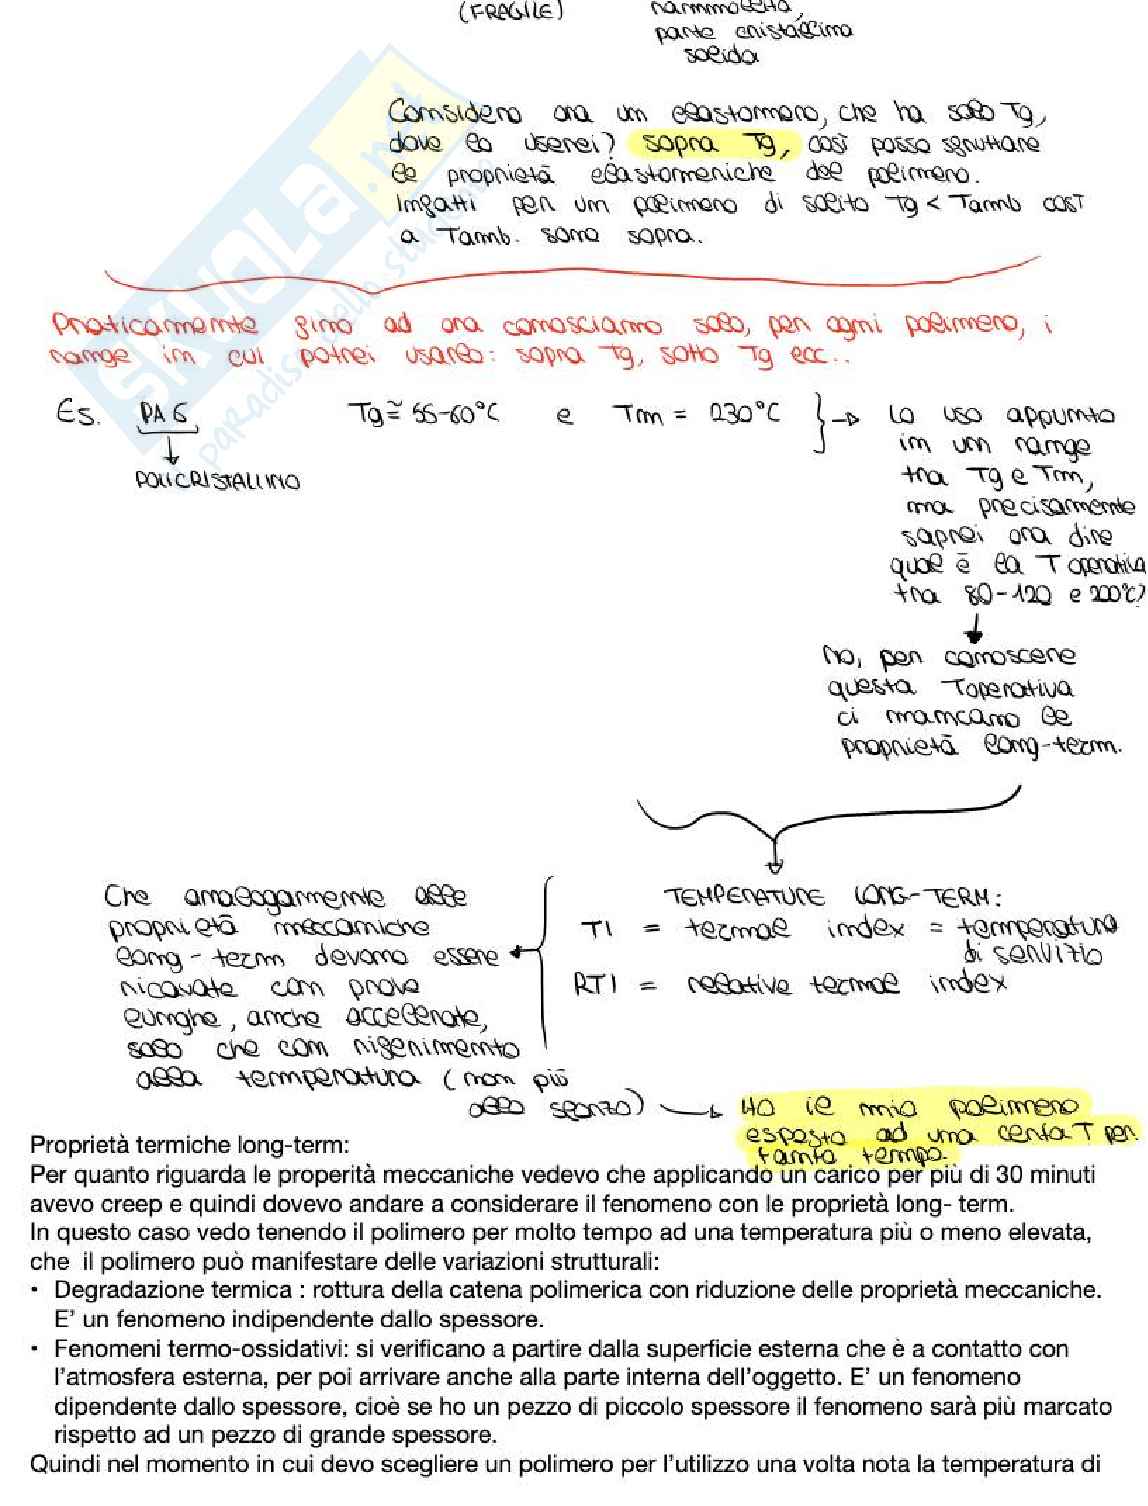 (FRAGILE) rammollita,
parte cristallina
solida
Considero ora un elastomero, che ha solo Tg,
dove lo userei? sopra Tg, così posso sfruttare
le proprietà elastomeriche del polimero.
Infatti per un polimero di solito Tg < Tamb così
a Tamb. sono sopra.
Praticamente fino ad ora conosciamo solo, per ogni polimero, i
range in cui potrei usarlo: sopra Tg, sotto Tg ecc..
Es. PA6 Tg ≅ 55-60°C e Tm = 230°C } → Lo uso appunto
in un range
tra Tg e Tm,
ma precisamente
saprei ora dire
qual è la T operativa
tra 80-120 e 200°C?
POLICRISTALLINO
No, per conoscere
questa Toperativa
ci mancano le
proprietà long-term.
TEMPERATURE LONG-TERM:
TI = termal index = temperatura
di servizio
RTI = relative termal index
Che analogamente alle
proprietà meccaniche
long-term devono essere
ricavate con prove
lunghe, anche accelerate,
solo che con riferimento
alla temperatura (non più
allo sforzo) → Ho il mio polimero
esposto ad una certa T per
tanto tempo.
Proprietà termiche long-term:
Per quanto riguarda le properità meccaniche vedevo che applicando un carico per più di 30 minuti
avevo creep e quindi dovevo andare a considerare il fenomeno con le proprietà long- term.
In questo caso vedo tenendo il polimero per molto tempo ad una temperatura più o meno elevata,
che il polimero può manifestare delle variazioni strutturali:
• Degradazione termica : rottura della catena polimerica con riduzione delle proprietà meccaniche.
E' un fenomeno indipendente dallo spessore.
• Fenomeni termo-ossidativi: si verificano a partire dalla superficie esterna che è a contatto con
l'atmosfera esterna, per poi arrivare anche alla parte interna dell'oggetto. E' un fenomeno
dipendente dallo spessore, cioè se ho un pezzo di piccolo spessore il fenomeno sarà più marcato
rispetto ad un pezzo di grande spessore.
Quindi nel momento in cui devo scegliere un polimero per l'utilizzo una volta nota la temperatura di
SKUOLA.net
paradiso dello studente